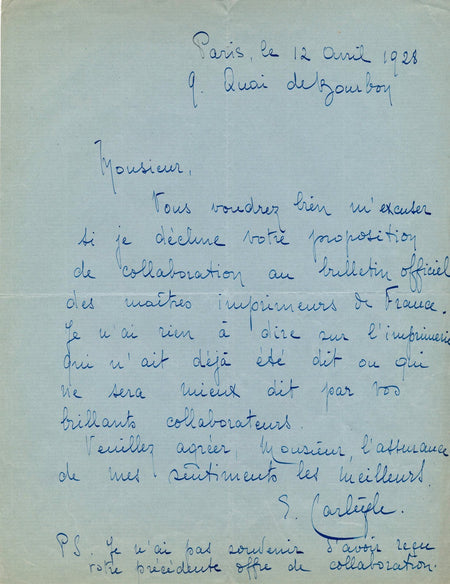 Paris, le 12 avril 1928
9. Quai de Bourbon
Monsieur,
Vous voudrez bien m'excuser
si je décline votre proposition
de collaboration au bulletin officiel
des maîtres imprimeurs de France.
Je n'ai rien à dire sur l'imprimerie
qui n'ait déjà été dit ou qui
ne sera mieux dit par vos
brillants collaborateurs.
Veuillez agréer, Monsieur, l'assurance
de mes sentiments les meilleurs.
E.
PS. Je n'ai pas souvenir d'avoir reçu
votre précédente offre de collaboration.